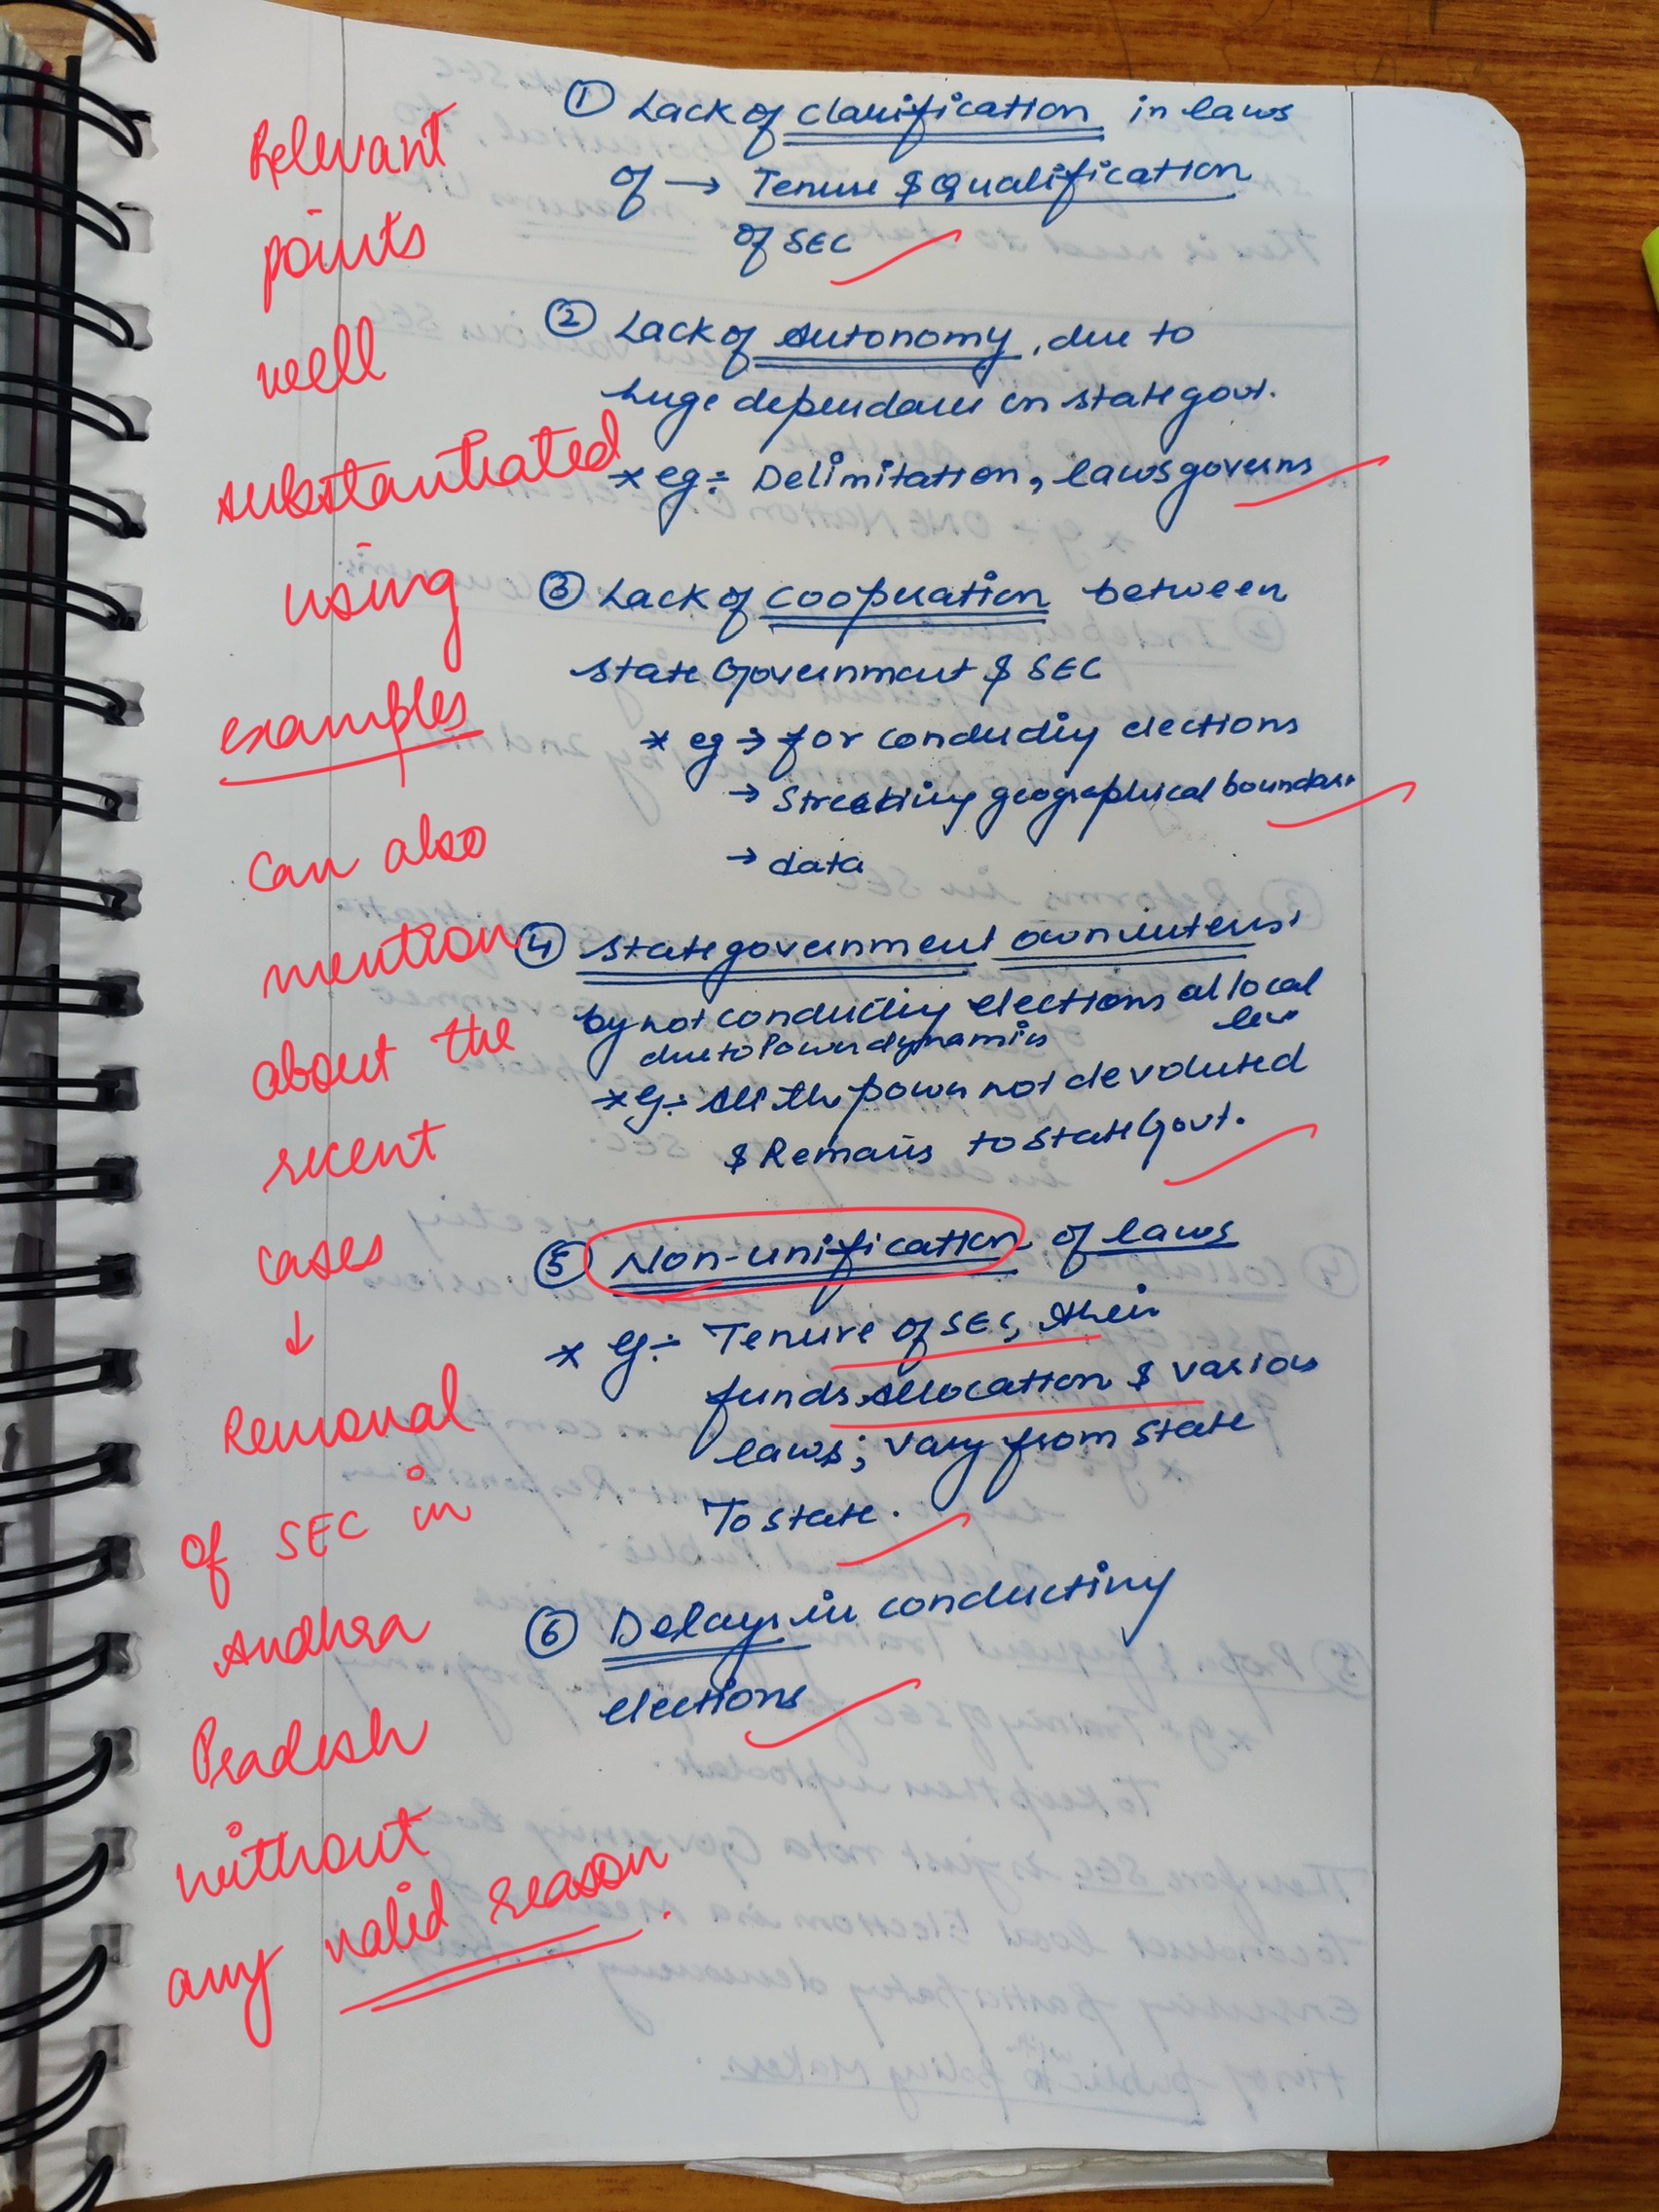 ① Lack of clarification in laws
of → Tenure & Qualification
of SEC
② Lack of Autonomy, due to
huge dependance on state govt.
* eg:- Delimitation, laws governs
③ Lack of cooperation between
State Government & SEC
* eg → for conducting elections
→ geographical boundari
→ data
④ State government own interest
by not conducting elections at local
level
due to Power dynamics
* eg:- All the power not devoluted
& Remains to State Govt.
⑤ Non-unification of laws
* eg:- Tenure of SEC, their
funds Allocation & various
laws; vary from state
To state.
⑥ Delays in conducting
elections
Relevant
points
well
substantiated
using
examples
Can also
mention
about the
recent
cases
↓
Removal
of SEC in
Andhra
Pradesh
without
any valid reason.